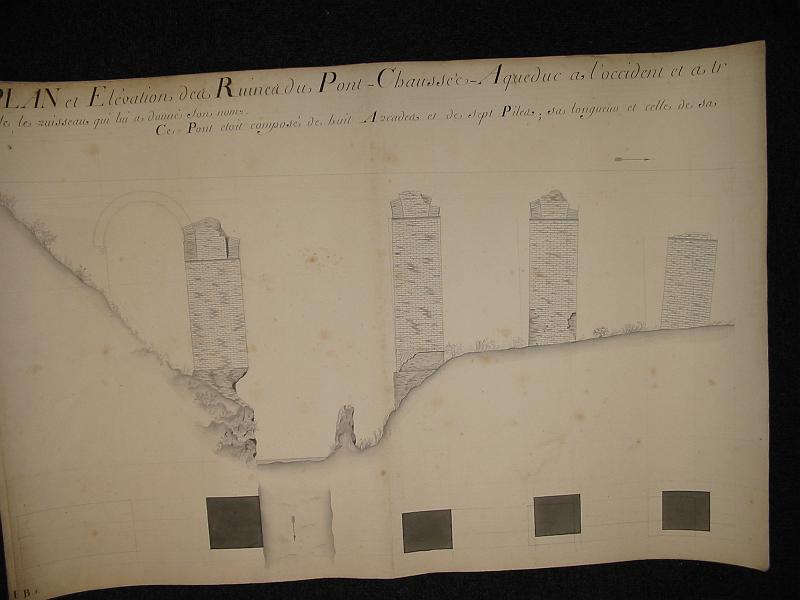 PLAN et Elévation des Ruines du Pont-Chaussée-Aqueduc a l'occident et a tr
le ruisseau qui lui a donné son nom.
Ce Pont etoit composé de huit Arcades et de sept Piles; sa longueur et celle de sa